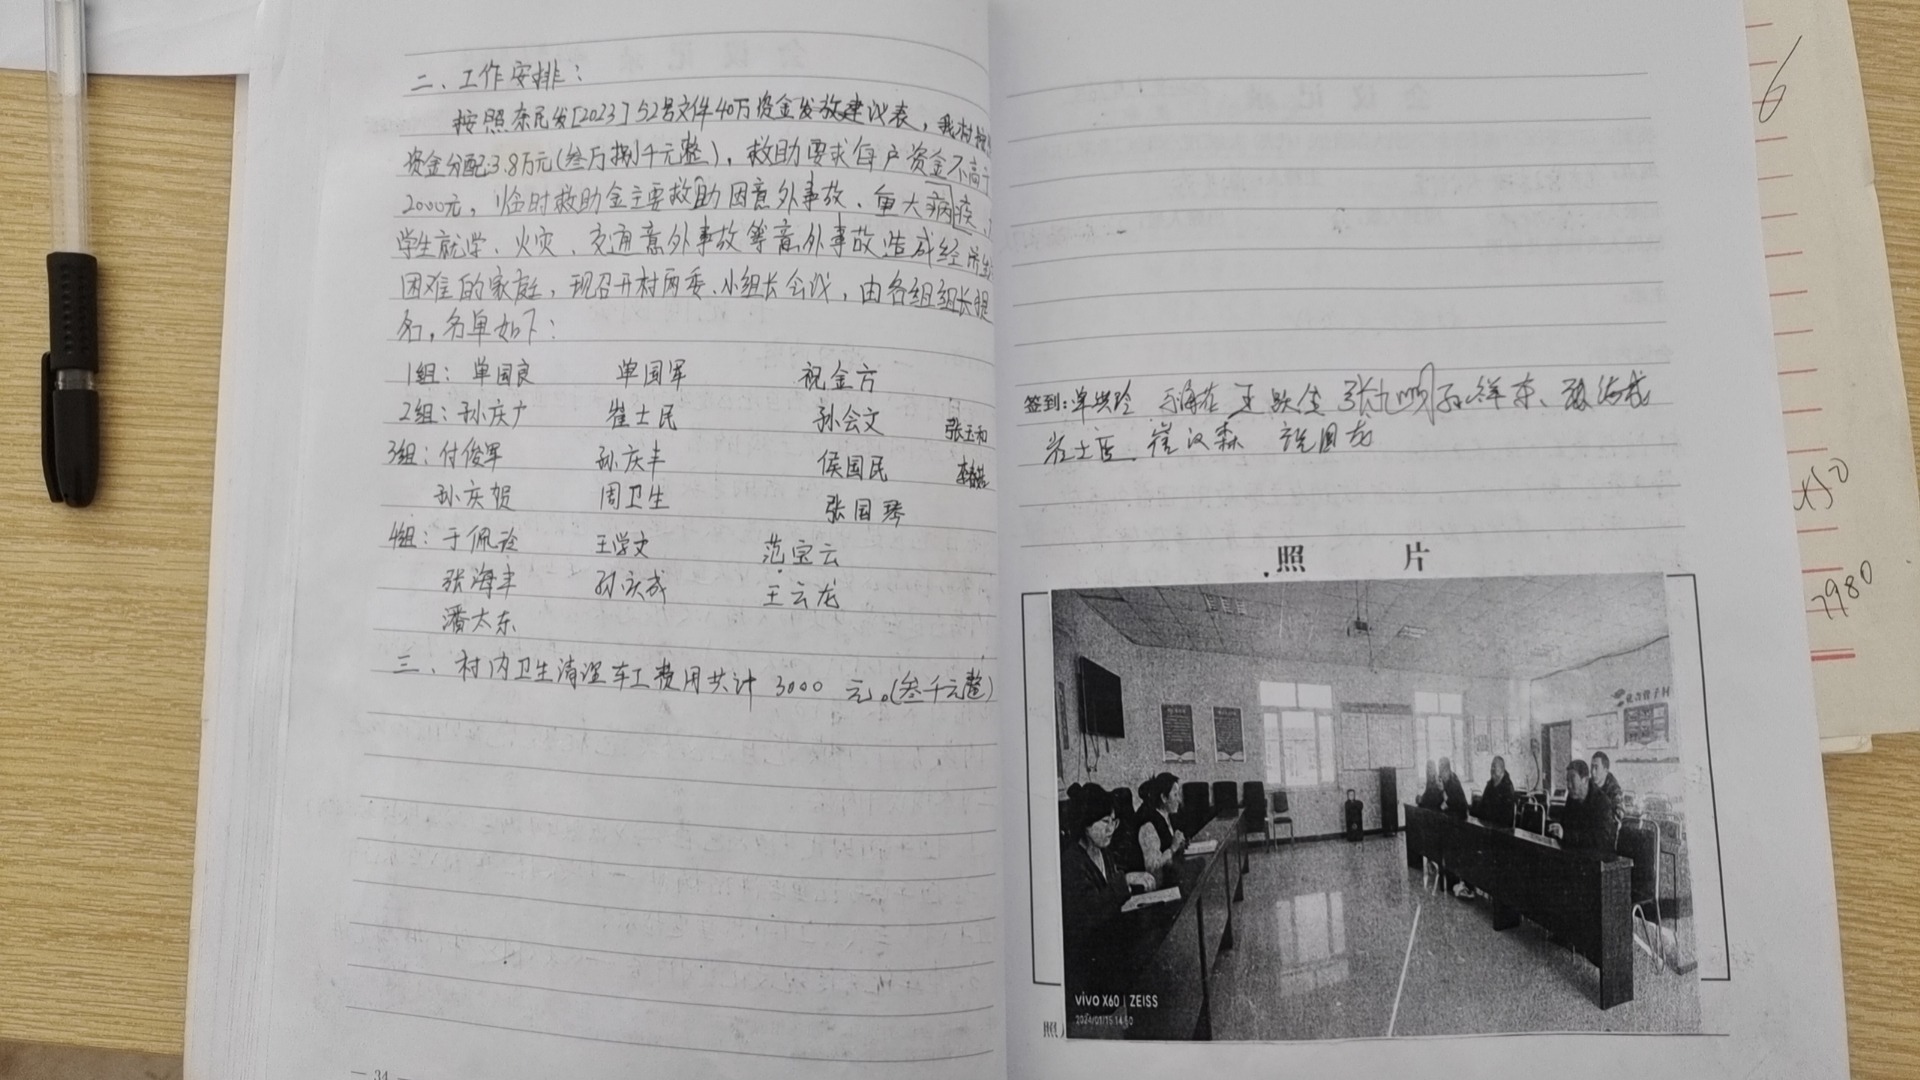 二、工作安排：
按照东民发[2023]52号文件40万资金发放建议表，我村
资金分配3.8万元(叁万捌千元整)，救助要求每户资金不高于
2000元，临时救助金主要救助因意外事故、重大病疾、
学生就学、火灾、交通意外事故等意外事故造成经济
困难的家庭，现召开村两委、小组长会议，由各组组长提
名，名单如下：
1组：单国良 单国军 祝金方
2组：孙庆广 崔士民 孙会文 张玉和
3组：付俊军 孙庆丰 侯国民
孙庆贺 周卫生 张国琴
4组：于佩玲 王学文 范宝云
张海丰 孙庆成 王云龙
潘太东
三、村内卫生清理车工费用共计 3000 元。(叁千元整)
— 34 —
签到：单洪玲 张九四 孙祥东、
崔汉森
照 片
vivo X60 | ZEISS
2024/01/15 14:50
照
6
7980